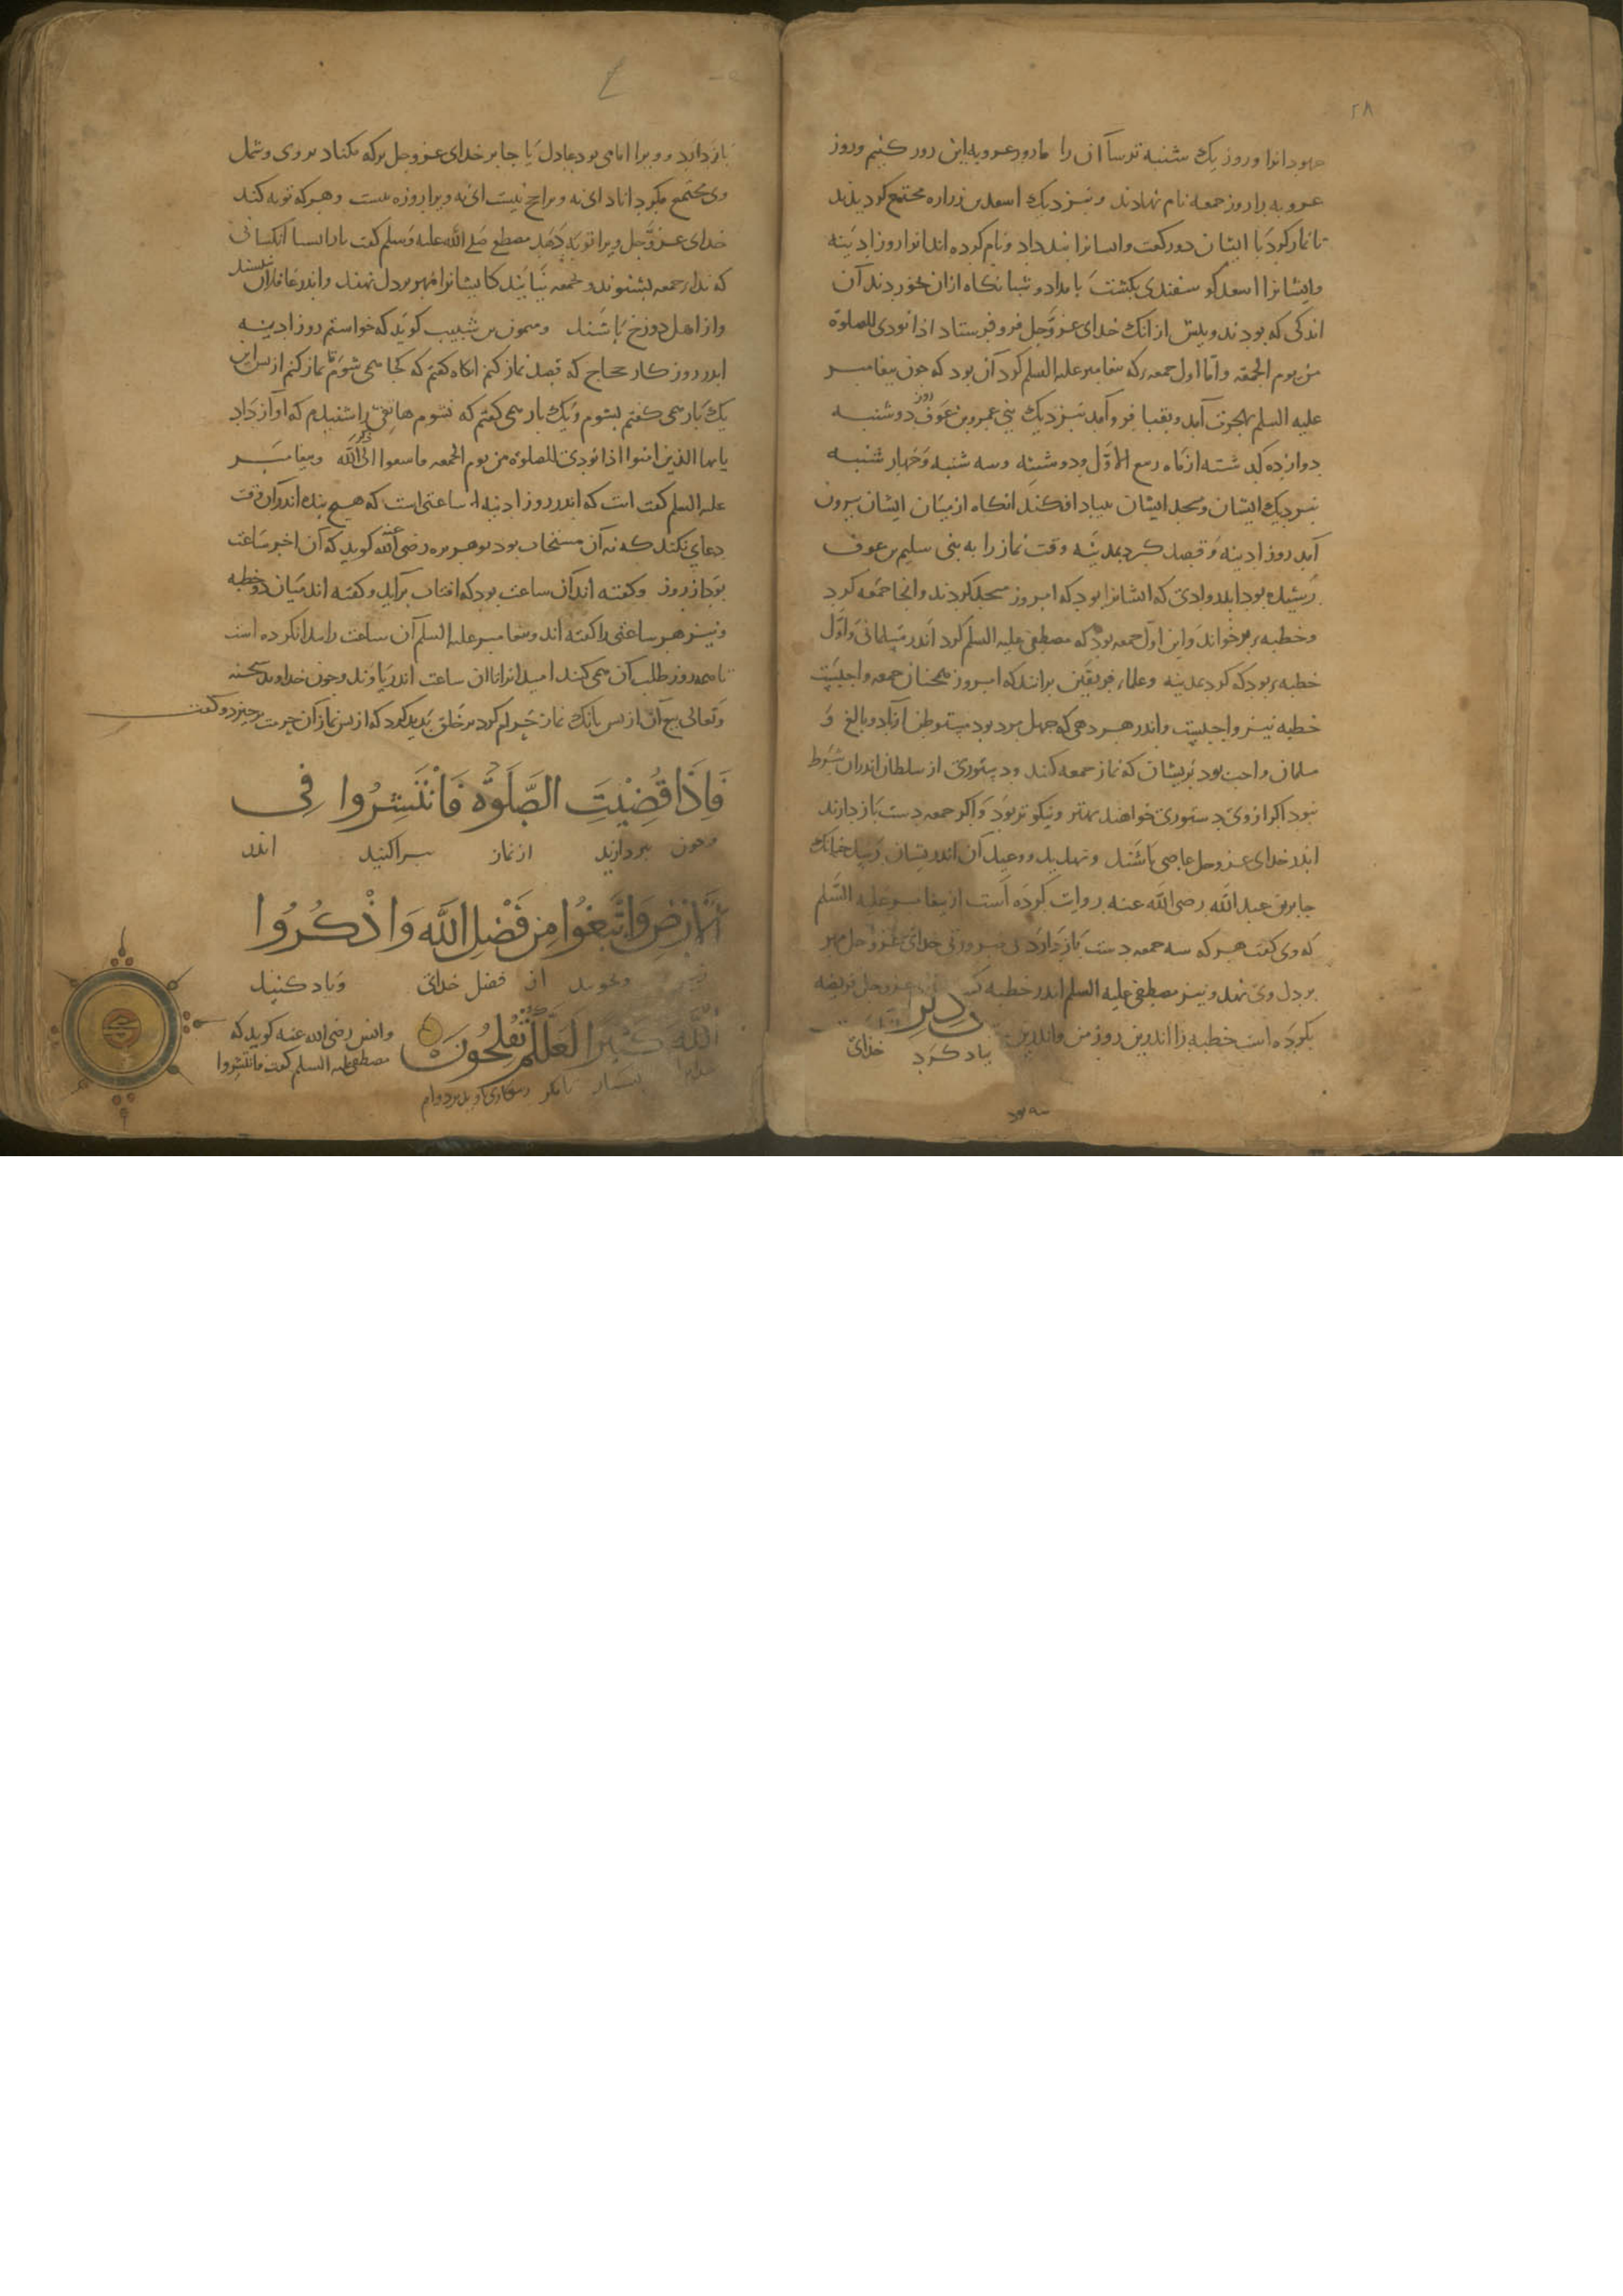 ۲۸
جهودانرا و روز یک شنبه ترسآان را ما روز عروبه این روز کنیم و روز
عروبه را روز جمعه نام نهادند و بنزدیک اسعد بن زراره مجتمع کردیدند
تا نماز کرد با ایشان دو رکعت و ایشانرا بند داد و نام کرده اند انرا روز ادینه
و ایشانرا اسعد کوسفندی بکشت بامداد و شبانکاه ازان خوردند آن
اندکی که بودند و بیش از انک خدای عز و جل فرو فرستاد اذا نودی للصلوة
من یوم الجمعة و اما اول جمعه که بیغامبر علیه السلم کرد آن بود که جون بیغامبر
علیه السلم بهجرت آمد و بقبا فرو آمد بنزدیک بنی عمرو بن عوف روز دوشنبه
دوازده کذشته از ماه ربیع الاول و دوشنبه و سه شنبه و جهار شنبه
بنزدیک ایشان و مسجد ایشان بنیاد افکند انکاه از میان ایشان بیرون
آمد روز ادینه و قصد کرد بمدینه وقت نماز را به بنی سلیم بن عوف
رسیده بود اندر وادی که ایشانرا بود که امروز مسجد کردند و انجا جمعه کرد
و خطبه بر خواند و این اول جمعه بود که مصطفی علیه السلم کرد اندر مسلمانی و اول
خطبه بود که کرد بمدینه و علماء فریقین برانند که امروز همجنان جمعه واجبست
خطبه نیز واجبست و اندر هر دهی که جهل مرد بود مستوطن آزاد و بالغ و
مسلمان واجب بود بریشان که نماز جمعه کنند و دستوری از سلطان اندران شرط
نبود اکر از وی دستوری خواهند بهتر و نیکوتر بود و اکر جمعه دست باز دارند
اندر خدای عز و جل عاصی باشند و تهدید و وعید آن اندریشان رسد جنانک
جابر بن عبد الله رضی الله عنه روایت کرده است از بیغامبر علیه السلم
که وی کفت هر که سه جمعه دست باز دارد بی ضرورتی خدای عز و جل مهر
بر دل وی نهد و نیز مصطفی علیه السلم اندر خطبه عز و جل فریضه
بکرده است خطبه را اندرین روز من و اندرین
یاد کرد خدای
باز دارد و ویرا امامی بود عادل یا جابر خدای عز و جل برکه مکناد بر وی و شمل
وی مجتمع مکرداناد ای نه ویرا حج نیست ای نه ویرا روزه نیست و هر که توبه کند
خدای عز و جل ویرا توبه دهد مصطفی صلی الله علیه وسلم کفت یا کسانی
که ندا جمعه بشنوند و بجمعه نیایند کایشانرا مهر بر دل نهند و اندر غافلان نبیسند
و از اهل دوزخ باشند و میمون بن شبیب کوید که خواستم روز ادینه
اندر روزکار حجاج که قصد نماز کنم انکاه کفتم که کجا همی شوم تا نماز کنم از بس این
یک بار همی کفتم بشوم و یک بار همی کفتم که نشوم هاتفی را شنیدم که آواز داد
یایها الذین امنوا اذا نودی للصلوة من یوم الجمعه فاسعوا الی ذکر الله و بیغامبر
علیه السلم کفت است که اندر روز ادینه ساعتی است که هیج بنده اندر آن وقت
دعای نکند که نه آن مستجاب بود بو هریره رضی الله عنه کوید که آن اخر ساعت
بود از روز و کفته اند آن ساعت بود که افتاب برآید و کفته اند میان دو خطبه
و نیز هر ساعتی را کفته اند و بیغامبر علیه السلم آن ساعت را بیدا نکرده است
تا همه روز طلب آن همی کنند امید انرا تا ان ساعت اندر یاوند و جون خداوند سبحنه
و تعالی بیع آن از بس بانک نماز حرام کرد بر خلق بدید کرد که از بس نماز آن حرمت برخیزد و کفت
فَاِذَا قُضِیَتِ الصَّلٰوةُ فَانْتَشِرُوا فِی
و جون ببردازید از نماز ببراکنید اندر
الْاَرْضِ وَابْتَغُوا مِنْ فَضْلِ اللّٰهِ وَاذْکُرُوا
زمین و بجویید از فضل خدای و یاد کنید
اللّٰهَ کَثِیرًا لَعَلَّکُمْ تُفْلِحُونَ
و انس رضی الله عنه کوید که
مصطفی علیه السلم کفت فانتشروا
خدایرا بسیار تا مکر رستکاری